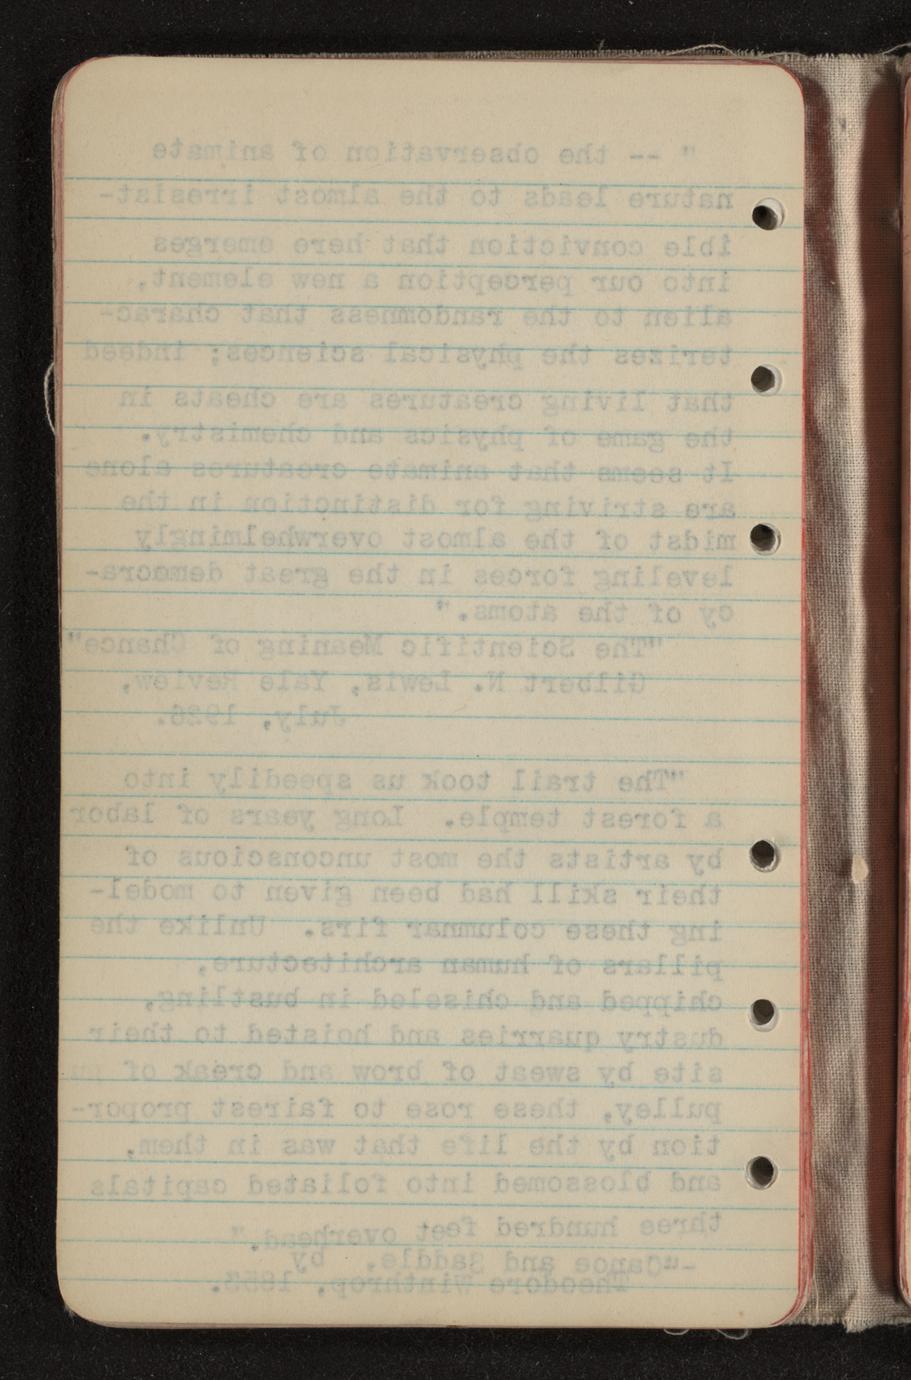 " -- the observation of animate
nature leads to the almost irresist-
ible conviction that here emerges
into our perception a new element,
alien to the randomness that charac-
terizes the physical sciences; indeed
that living creatures are cheats in
the game of physics and chemistry.
It seems that animate creatures alone
are striving for distinction in the
midst of the almost overwhelmingly
leveling forces in the great democra-
cy of the atoms."
"The Scientific Meaning of Chance"
Gilbert N. Lewis, Yale Review,
July, 1926.
"The trail took us speedily into
a forest temple. Long years of labor
by artists the most unconscious of
their skill had been given to model-
ing these columnar firs. Unlike the
pillars of human architecture,
chipped and chiseled in bustling,
dustry quarries and hoisted to their
site by sweat of brow and creak of pu
pulley, these rose to fairest propor-
tion by the life that was in them,
and blossomed into foliated capitals
three hundred feet overhead."
-"Canoe and Saddle, by
Theodore Winthrop, 1853.